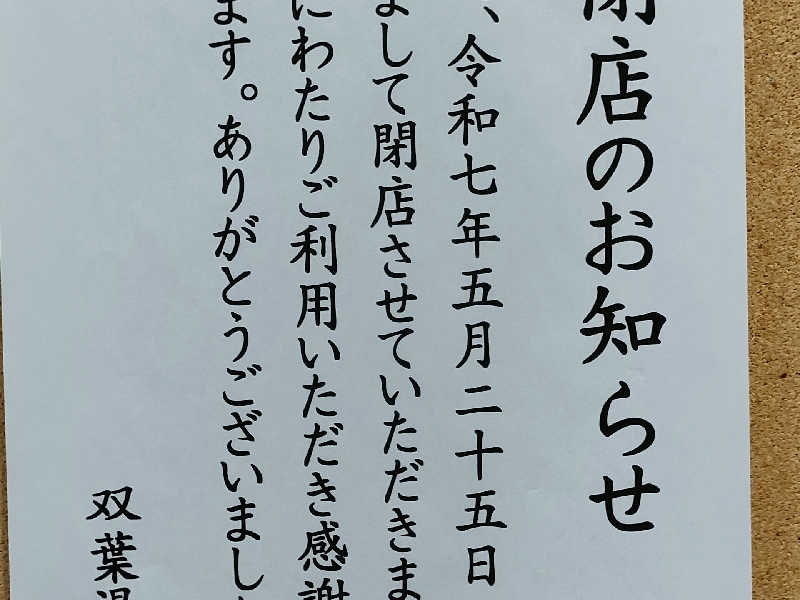 閉店のお知らせ
、令和七年五月二十五日
まして閉店させていただきま
にわたりご利用いただき感謝
ます。ありがとうございまし
双葉